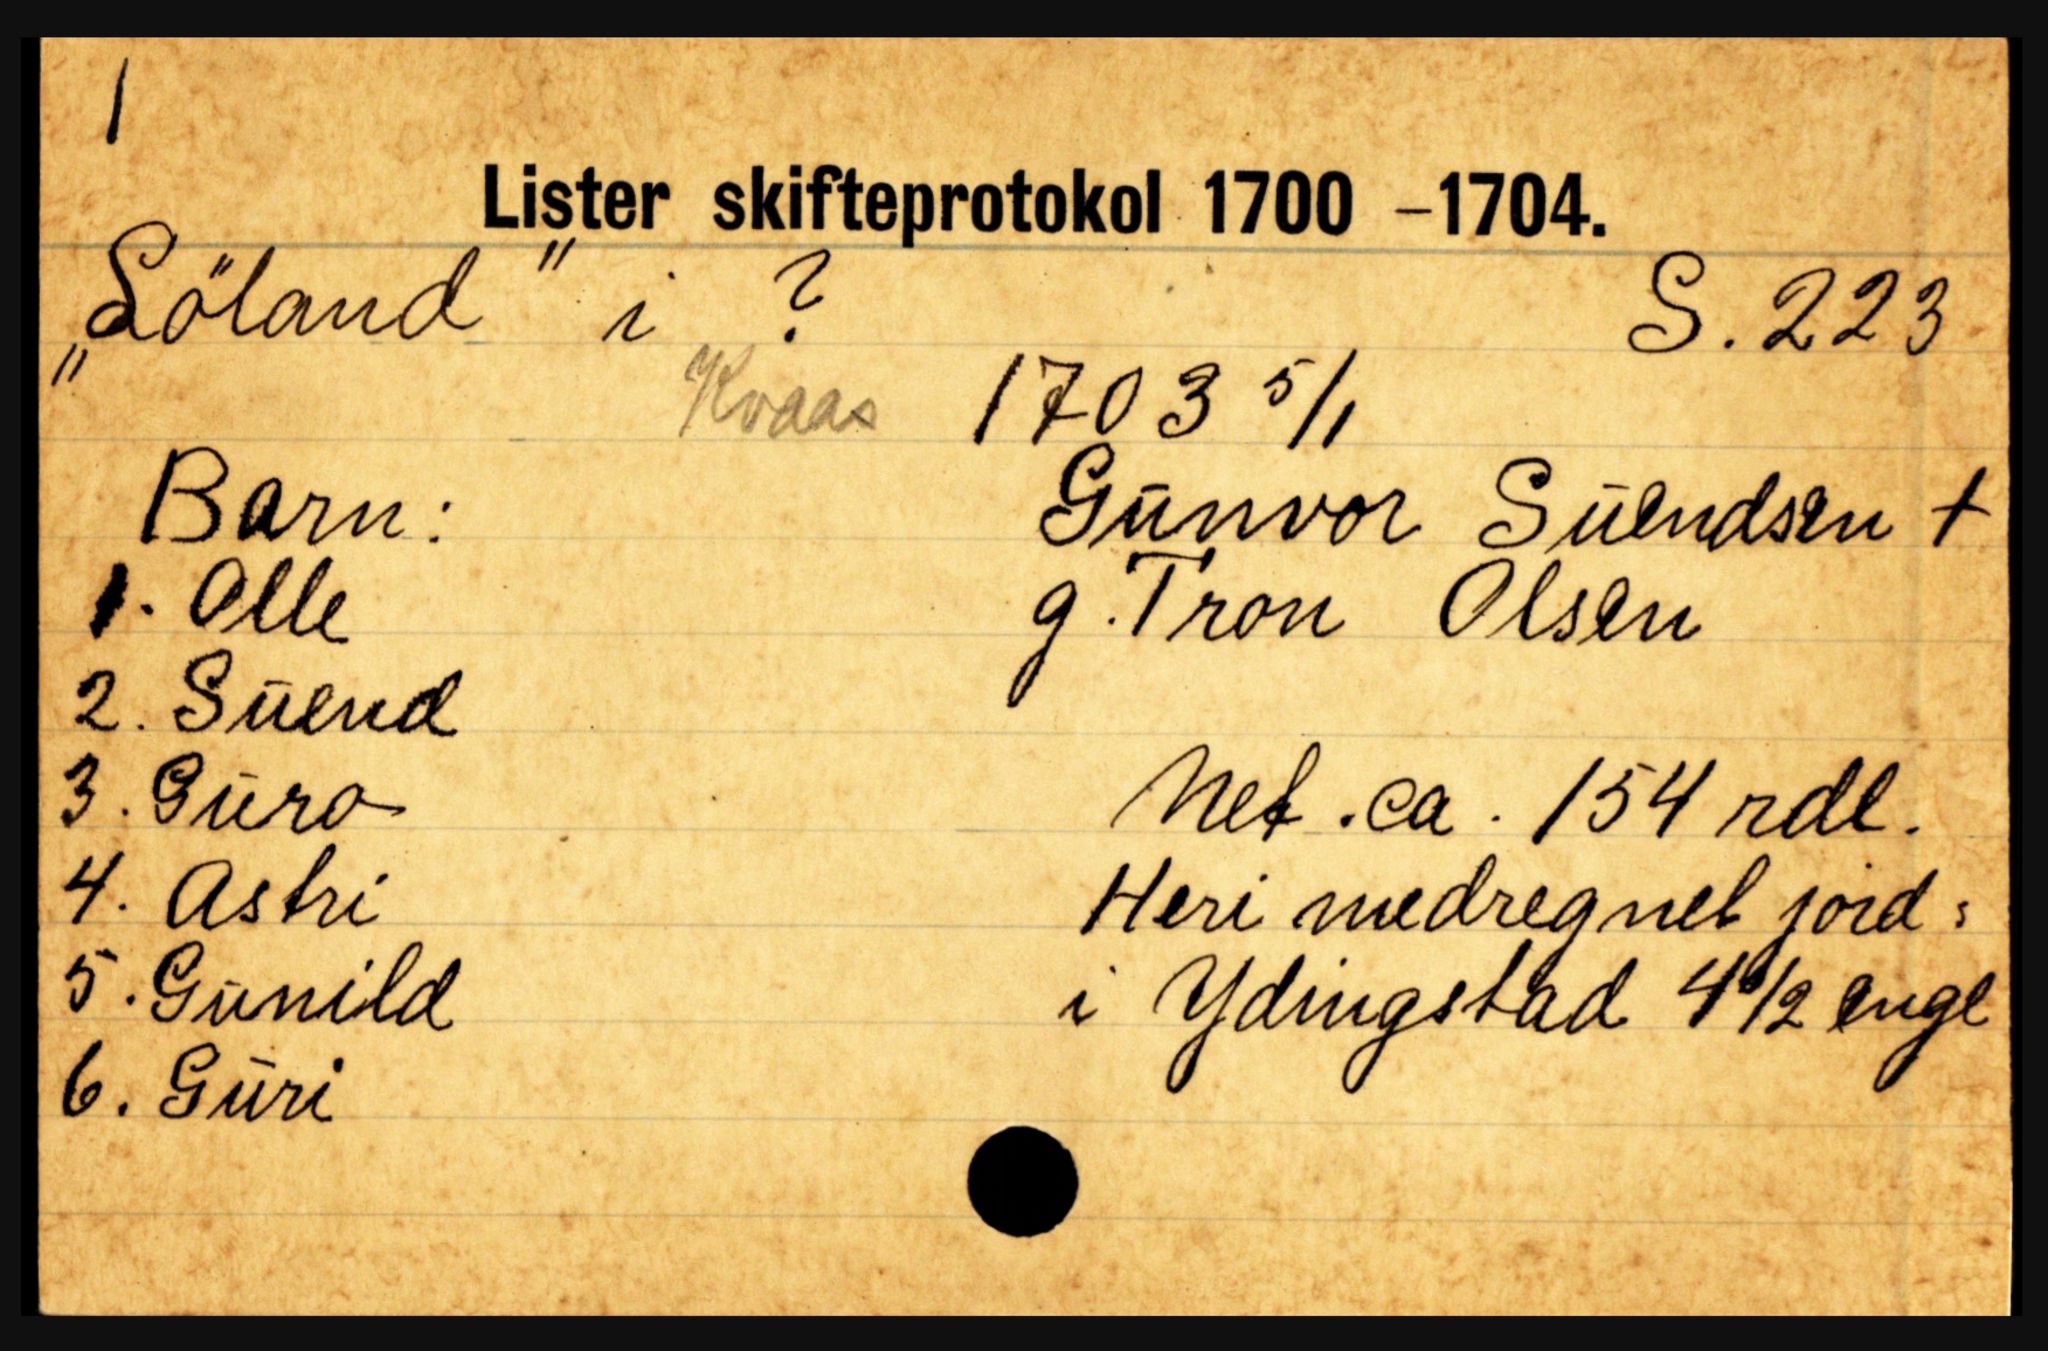 1
Lister skifteprotokol 1700 –1704.
„Söland" i ? S. 223
Kvaas 1703 5/1
Barn: Gūnvor Sūendsen +
1. Olle g. Tron Olsen
2. Sūend
3. Gūro Net. ca. 154 rdl.
4. Astri Heri medregnet jord:
5. Gūnild i Ydingstad 4 1/2 engl
6. Gūri